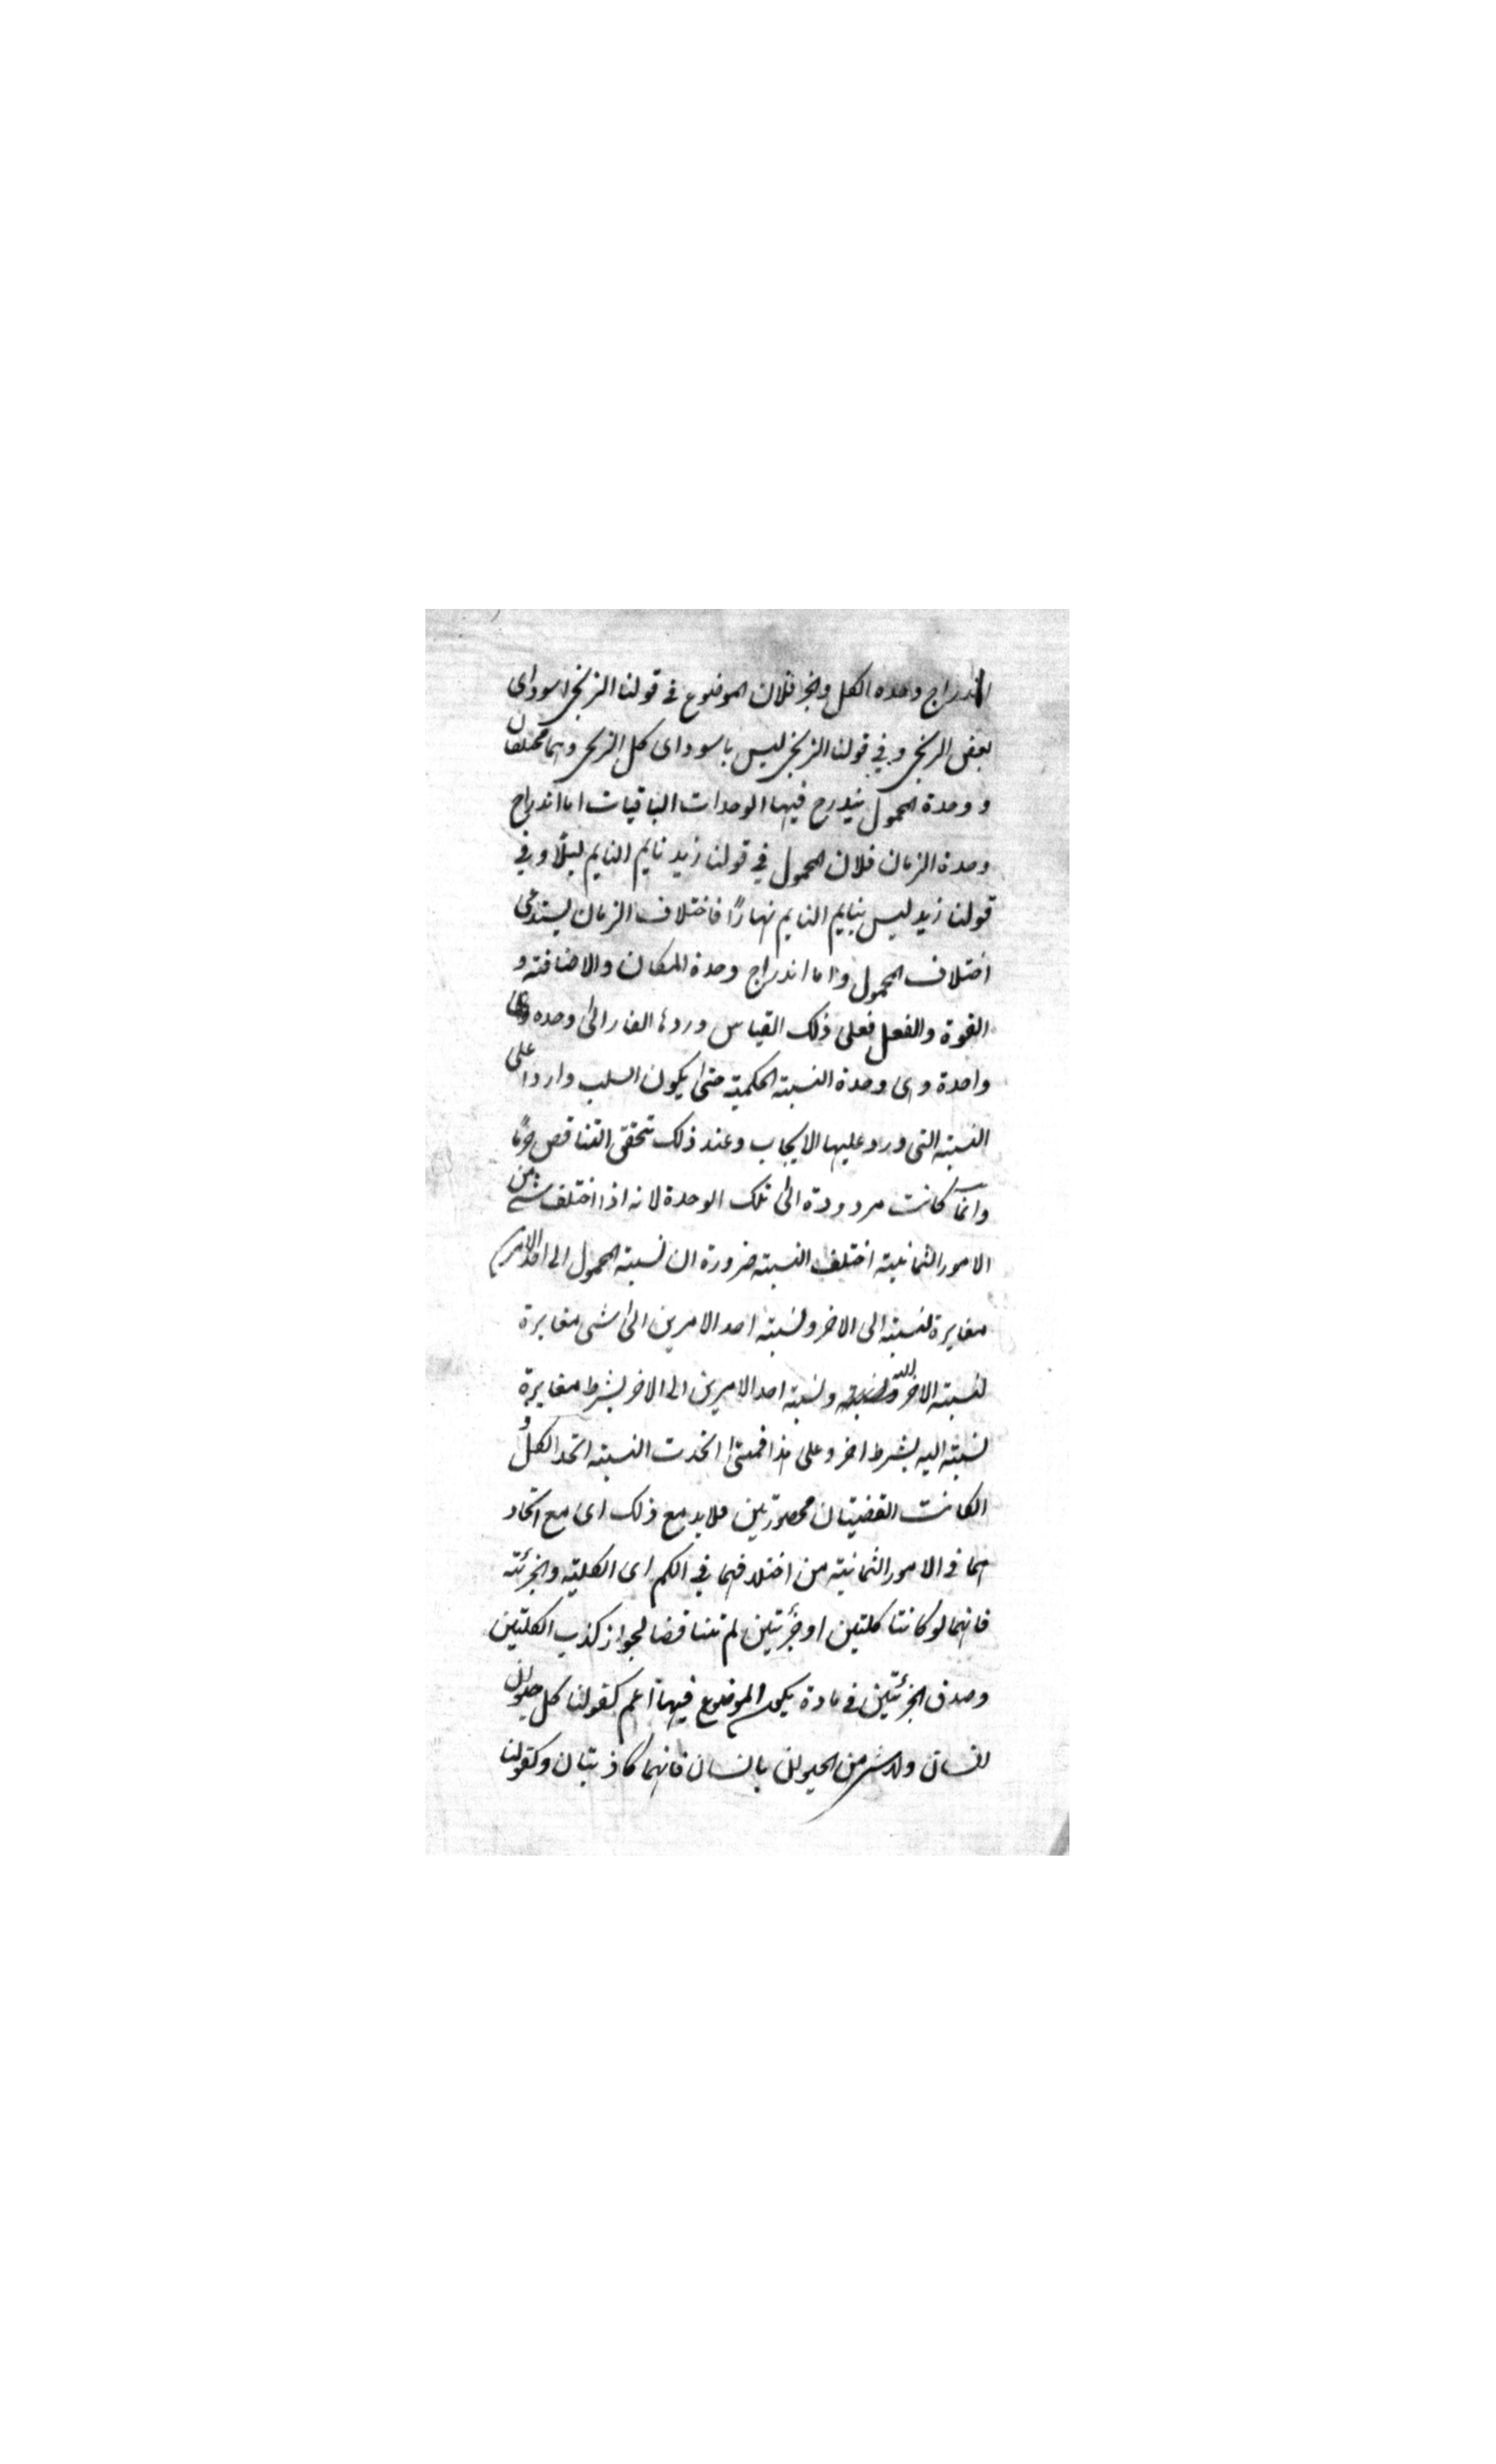 اندراج وحده الكل والجز فلان الموضوع فى قولنا الزنجى اسود اى
بعض الزنجى وفي قولنا الزنجى ليس باسود اى كل الزنجى وهما مختلفان
و وحدة المحمول يندرج فيها الوحدات الباقيات اما اندراج
وحدة الزمان فلان المحمول في قولنا زيد نايم النايم ليلًا وفي
قولنا زيد ليس بنايم النايم نهارًا فاختلاف الزمان يستدعى
اختلاف المحمول واما اندراج وحدة المكان والاضافة و
القوة والفعل فعلى ذلك القياس وردها الفارابى الى وحده
واحدة وهى وحدة النسبته الحكميته حتى يكون السلب واردا على
النسبته التى ورد عليها الايجاب وعند ذلك يتحقق التناقص جزمًا
وانما كانت مردودة الى تلك الوحدة لانه اذا اختلف شئ من
الامور الثمانيته اختلف النسبته ضرورة ان نسبته المحمول الى احد الامرين
مغايرة لنسبته الى الاخر ونسبته احد الامرين الى شى مغايرة
لنسبته الاخر اليه ونسبته احد الامرين الى الاخر بشرط مغايرة
لنسبته اليه بشرط اخر وعلى هذا فمتى اتحدت النسبته اتحد الكل و
انكانت القضيتان محصورتين فلا بد مع ذلك اى مع اتحاد
هما فى الامور الثمانيته من اختلافهما في الكم اى الكليته والجزئته
فانهما لو كانتا كلتين او جزئتين لم تتناقضا لجواز كذب الكلتين
وصدق الجزئتين فى مادة يكون الموضوع فيها اعم كقولنا كل حيوان
انسان ولا شئ من الحيوان بانسان فانهما كاذبتان وكقولنا